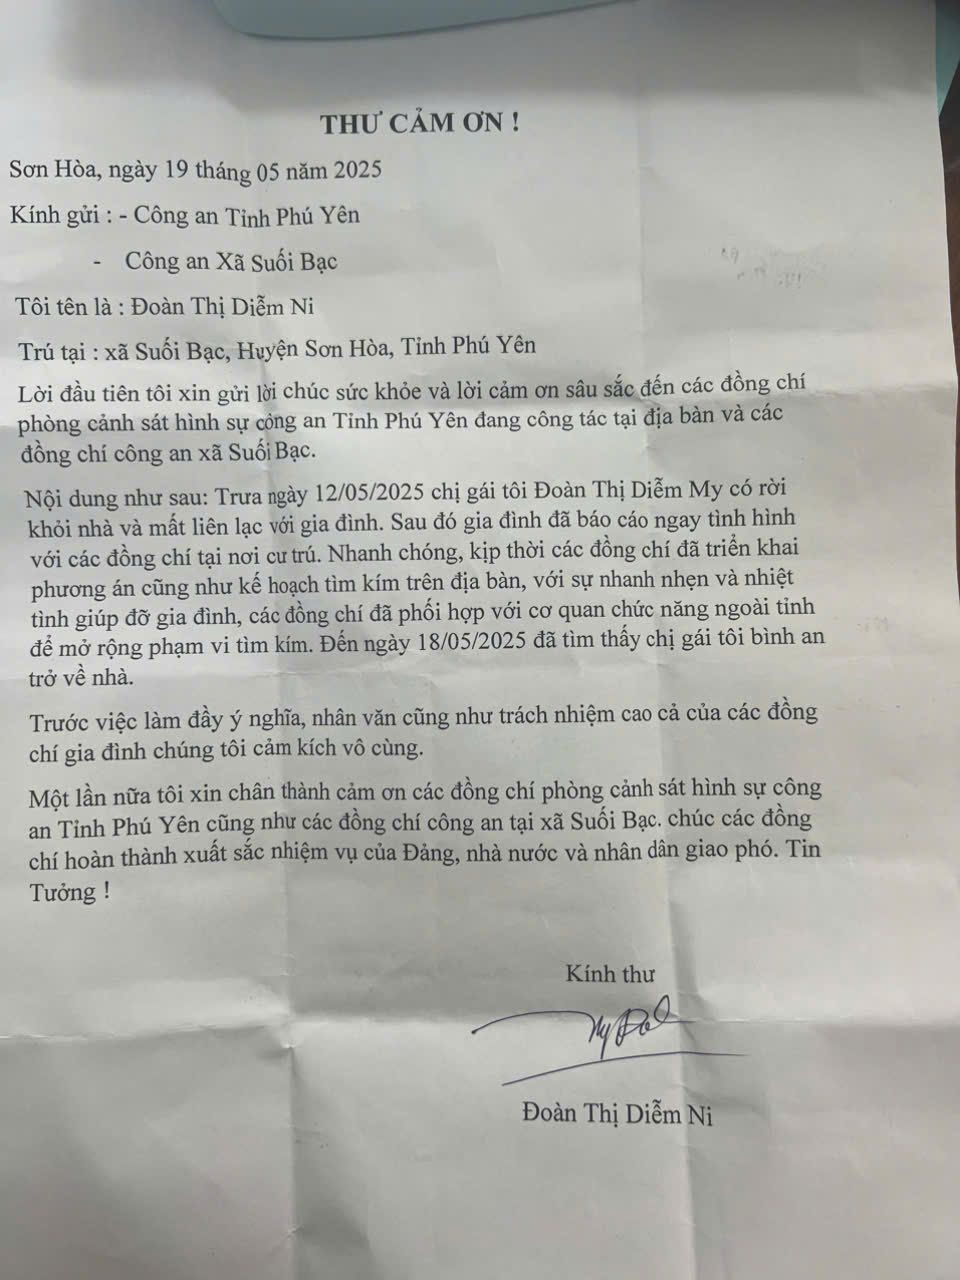 THƯ CẢM ƠN !
Sơn Hòa, ngày 19 tháng 05 năm 2025
Kính gửi : - Công an Tỉnh Phú Yên
- Công an Xã Suối Bạc
Tôi tên là : Đoàn Thị Diễm Ni
Trú tại : xã Suối Bạc, Huyện Sơn Hòa, Tỉnh Phú Yên
Lời đầu tiên tôi xin gửi lời chúc sức khỏe và lời cảm ơn sâu sắc đến các đồng chí
phòng cảnh sát hình sự công an Tỉnh Phú Yên đang công tác tại địa bàn và các
đồng chí công an xã Suối Bạc.
Nội dung như sau: Trưa ngày 12/05/2025 chị gái tôi Đoàn Thị Diễm My có rời
khỏi nhà và mất liên lạc với gia đình. Sau đó gia đình đã báo cáo ngay tình hình
với các đồng chí tại nơi cư trú. Nhanh chóng, kịp thời các đồng chí đã triển khai
phương án cũng như kế hoạch tìm kím trên địa bàn, với sự nhanh nhẹn và nhiệt
tình giúp đỡ gia đình, các đồng chí đã phối hợp với cơ quan chức năng ngoài tỉnh
để mở rộng phạm vi tìm kím. Đến ngày 18/05/2025 đã tìm thấy chị gái tôi bình an
trở về nhà.
Trước việc làm đầy ý nghĩa, nhân văn cũng như trách nhiệm cao cả của các đồng
chí gia đình chúng tôi cảm kích vô cùng.
Một lần nữa tôi xin chân thành cảm ơn các đồng chí phòng cảnh sát hình sự công
an Tỉnh Phú Yên cũng như các đồng chí công an tại xã Suối Bạc. chúc các đồng
chí hoàn thành xuất sắc nhiệm vụ của Đảng, nhà nước và nhân dân giao phó. Tin
Tưởng !
Kính thư
Đoàn Thị Diễm Ni